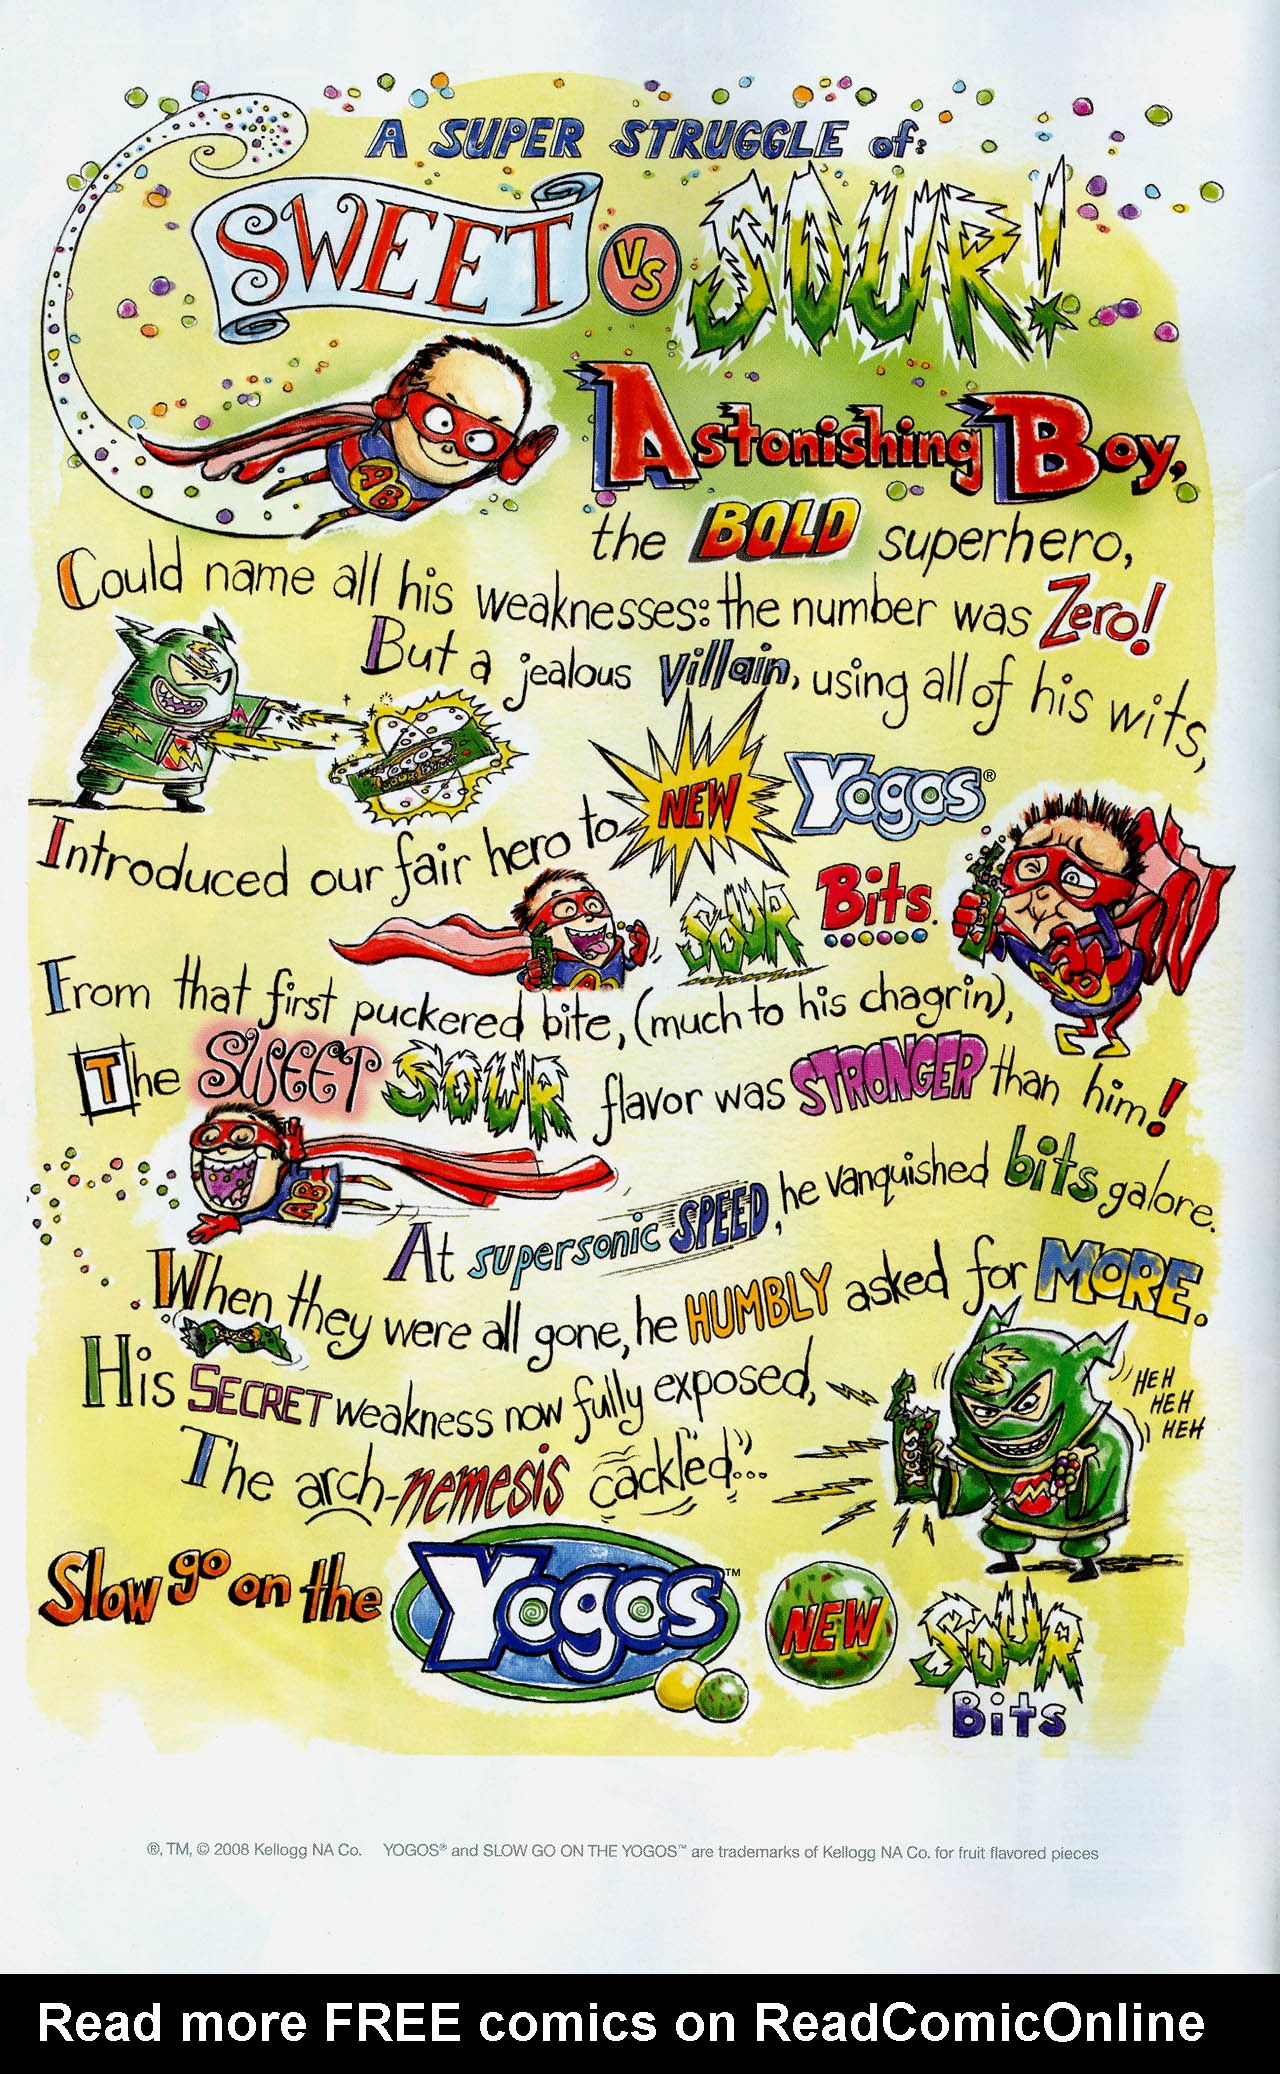 A SUPER STRUGGLE of:
SWEET VS SOUR!
Astonishing Boy,
the BOLD superhero,
Could name all his weaknesses: the number was Zero!
But a jealous Villain, using all of his wits,
Introduced our fair hero to NEW Yogos®
SOUR Bits.
From that first puckered bite, (much to his chagrin),
The SWEET SOUR flavor was STRONGER than him!
At supersonic SPEED, he vanquished bits galore.
When they were all gone, he HUMBLY asked for MORE.
His SECRET weakness now fully exposed,
HEH
HEH
HEH
The arch-nemesis cackled...
Slow go on the Yogos™ NEW SOUR
Bits
®, TM, © 2008 Kellogg NA Co. YOGOS® and SLOW GO ON THE YOGOS™ are trademarks of Kellogg NA Co. for fruit flavored pieces
Read more FREE comics on ReadComicOnline